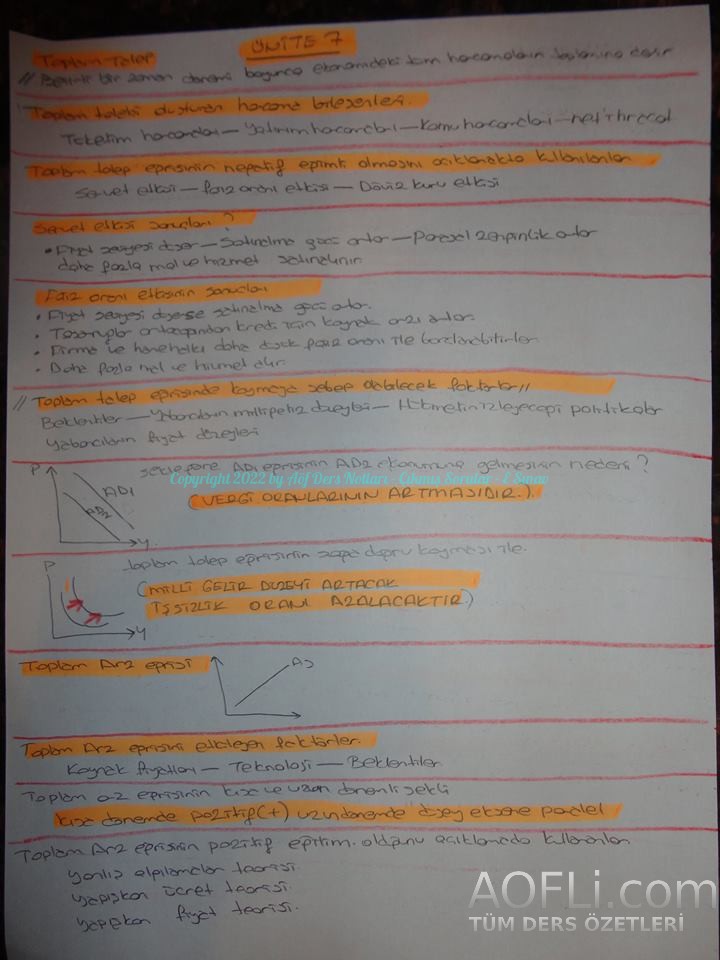 ÜNİTE 7
Toplam Talep
// Belirli bir zaman dönemi boyunca ekonomideki tüm harcamaların toplamına denir
Toplam talebi oluşturan harcama bileşenleri.
Tüketim harcamaları — Yatırım harcamaları — Kamu harcamaları — net ihracat
Toplam talep eğrisinin negatif eğimli olmasını açıklamakta kullanılanlar
Servet etkisi — faiz oranı etkisi — Döviz kuru etkisi
Servet etkisi sonuçları ?
• Fiyat seviyesi düşer — Satınalma gücü artar — Parasal zenginlik artar
daha fazla mal ve hizmet satınalınır.
Faiz oranı etkisinin sonuçları
• Fiyat seviyesi düşerse satınalma gücü artar.
• Tasarruflar artacağından kredi için kaynak arzı artar.
• Firma ve hanehalkı daha düşük faiz oranı ile borçlanabilirler
• Daha fazla mal ve hizmet alır.
// Toplam talep eğrisinde kaymaya sebep olabilecek faktörler //
Beklentiler — Yabancıların milli gelir düzeyleri — Hükümetin izleyeceği politikalar
Yabancıların fiyat düzeyleri
P
AD1
AD2
Y
şekle göre AD1 eğrisinin AD2 konumuna gelmesinin nedeni ?
Copyright 2022 by Aöf Ders Notları - Çıkmış Sorular - E Sınav
(VERGİ ORANLARININ ARTMASIDIR.).
P
Y
toplam talep eğrisinin sağa doğru kayması ile.
(MİLLİ GELİR DÜZEYİ ARTACAK
İŞSİZLİK ORANI AZALACAKTIR.)
Toplam Arz eğrisi
AS
Toplam Arz eğrisini etkileyen faktörler.
Kaynak fiyatları — Teknoloji — Beklentiler
Toplam arz eğrisinin kısa ve uzun dönemli şekli
kısa dönemde pozitif(+) uzun dönemde düşey eksene paralel
Toplam Arz eğrisinin pozitif eğitim. olduğunu açıklamada kullanılanlar
yanlış algılamalar teorisi.
yapışkan ücret teorisi.
yapışkan fiyat teorisi.
AOFLi.com
TÜM DERS ÖZETLERİ